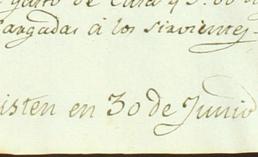 gasto de Casa y S.
cargadas á los sirvientes.
isten en 30 de Junio